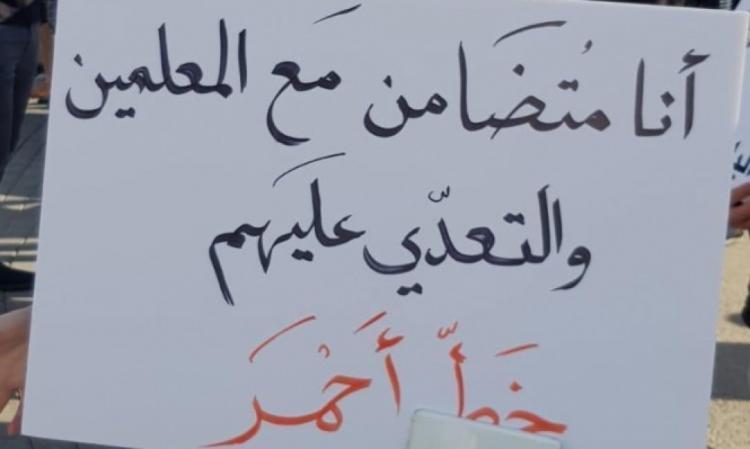 أنا مُتضَامن مَع المعلمين
والتعدّي عليهم
خَطّ أَحْمَر